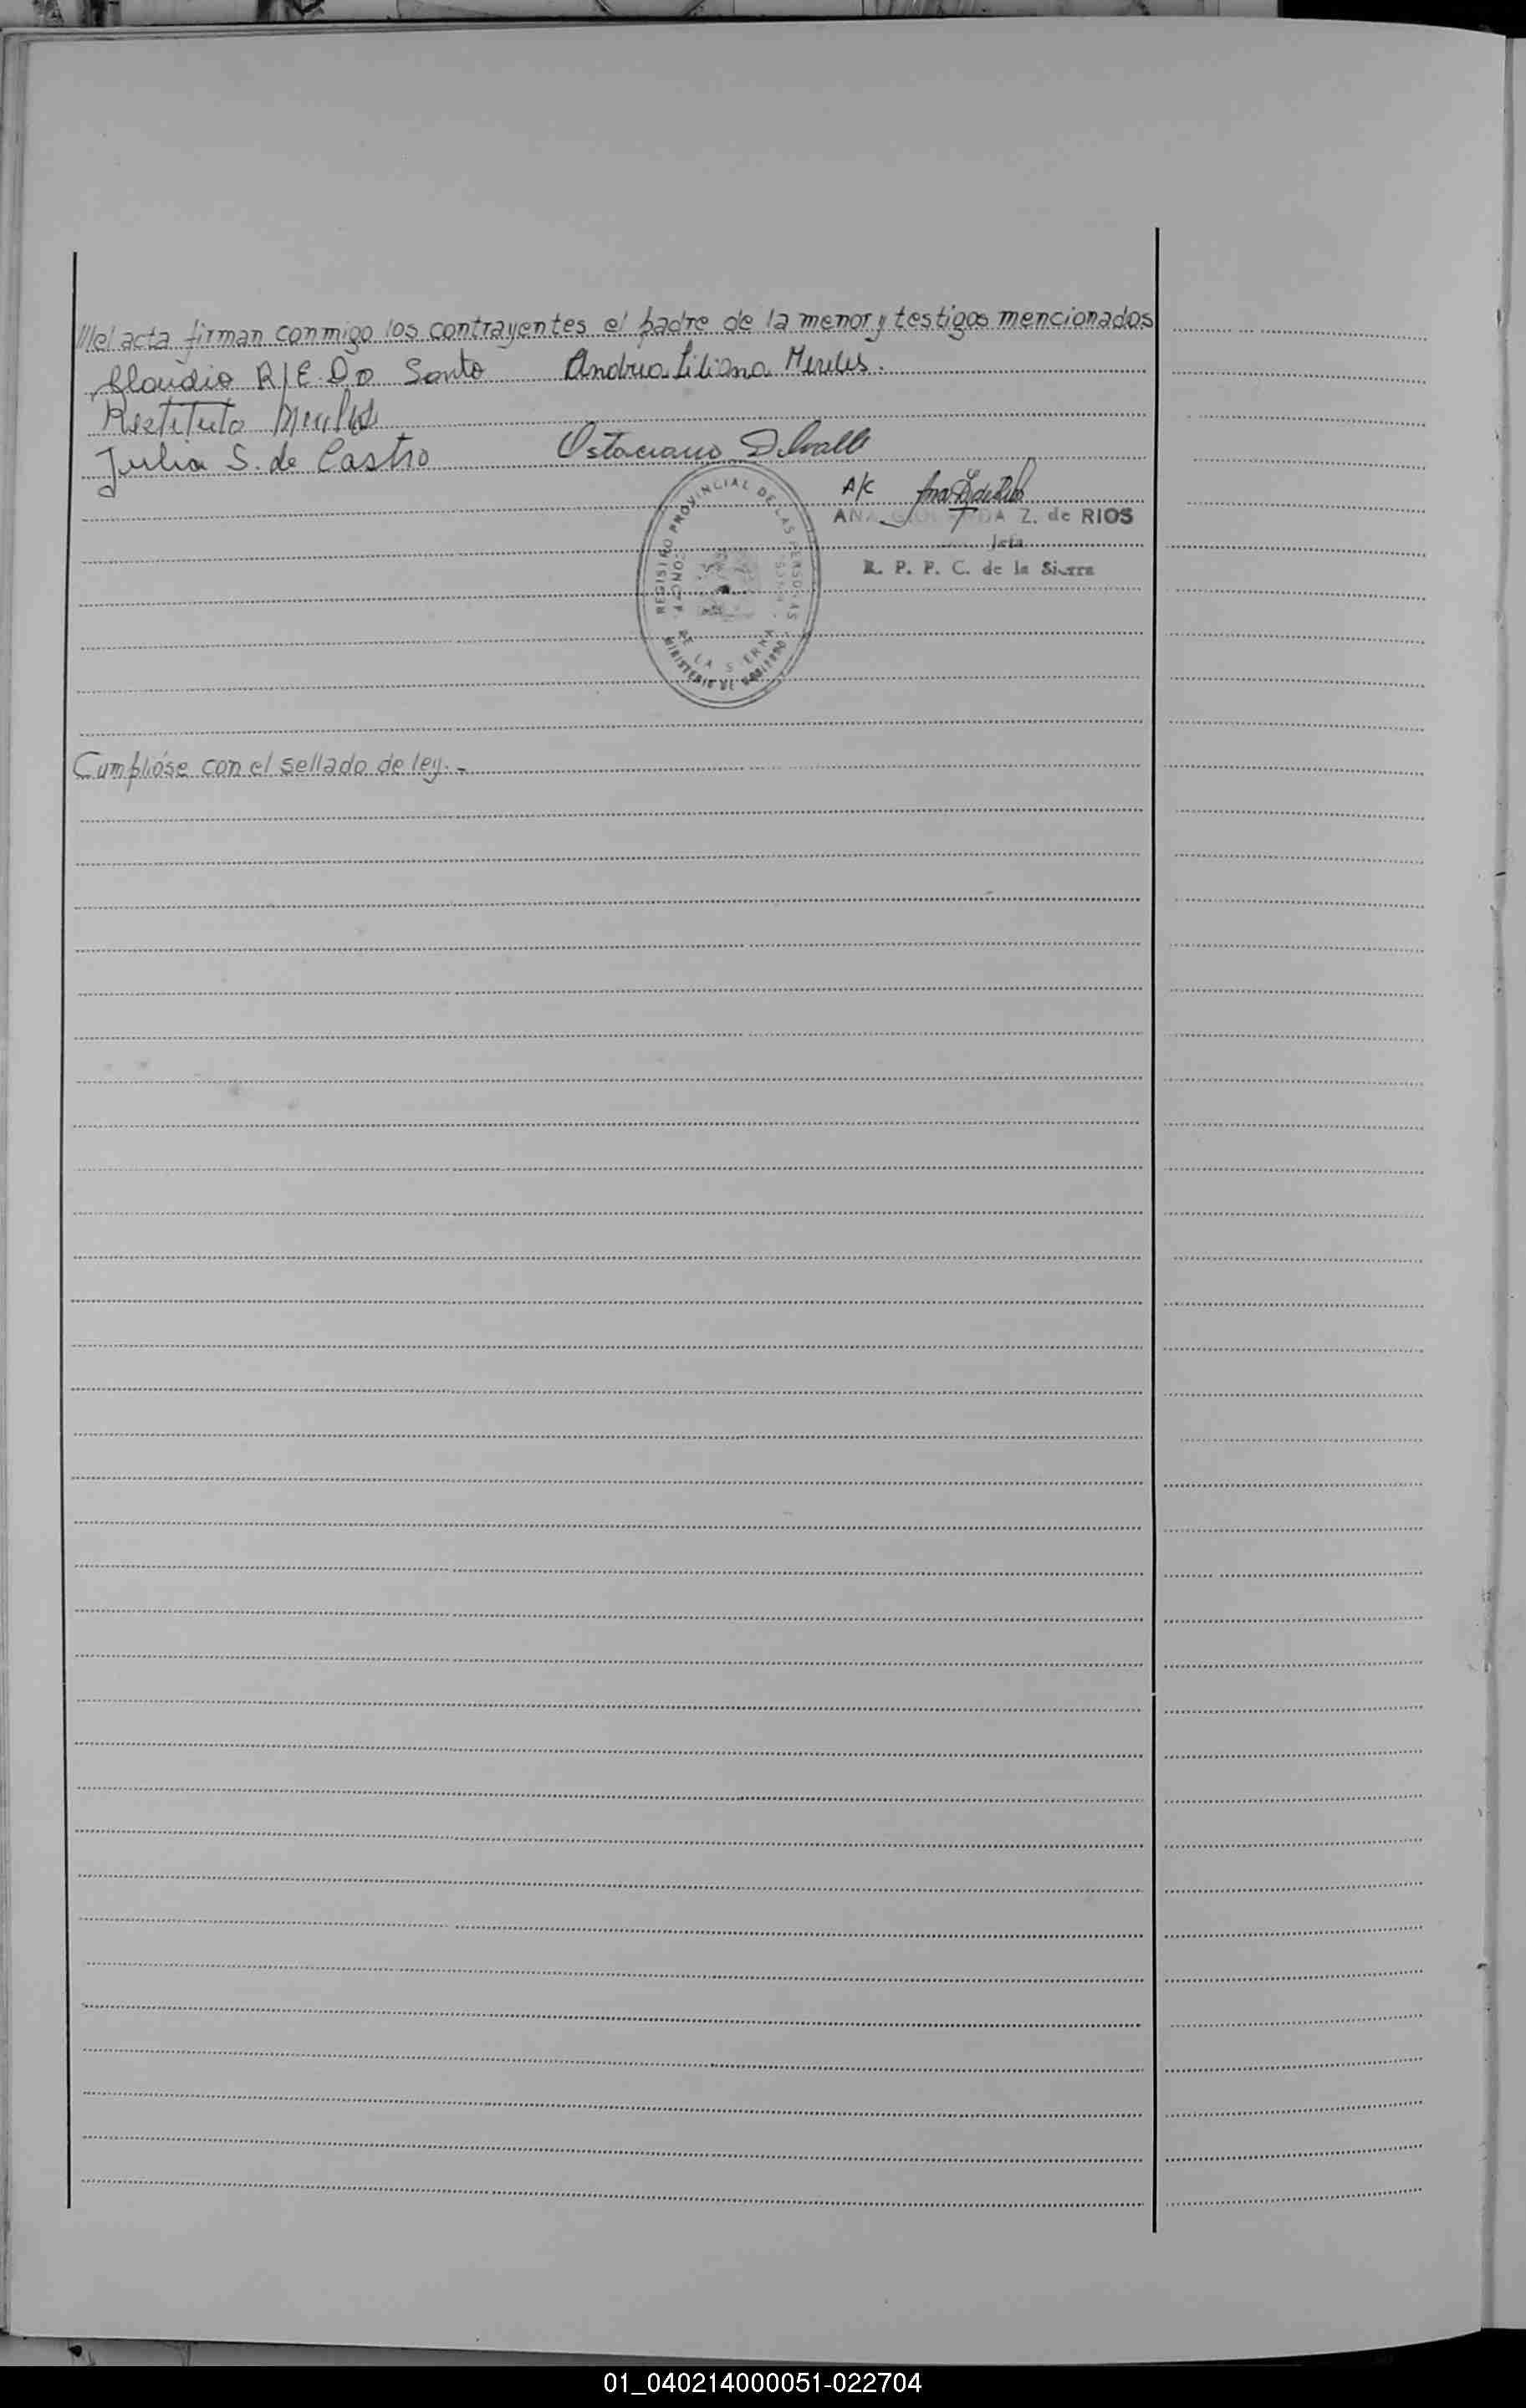 ///el acta firman conmigo los contrayentes el padre de la menor y testigos mencionados
Claudio R/E. Do Santo Andrea Liliana Mereles.
Restituto Mereles
Julia S. de Castro Ostaciano Delvalle
A/C
ANA Z. de RIOS
Jefa
R. P. P. C. de la Sierra
REGISTRO PROVINCIAL DE LAS PERSONAS
DE LA SIERRA
MINISTERIO DE GOBIERNO
Cumplióse con el sellado de ley.-
01_040214000051-022704